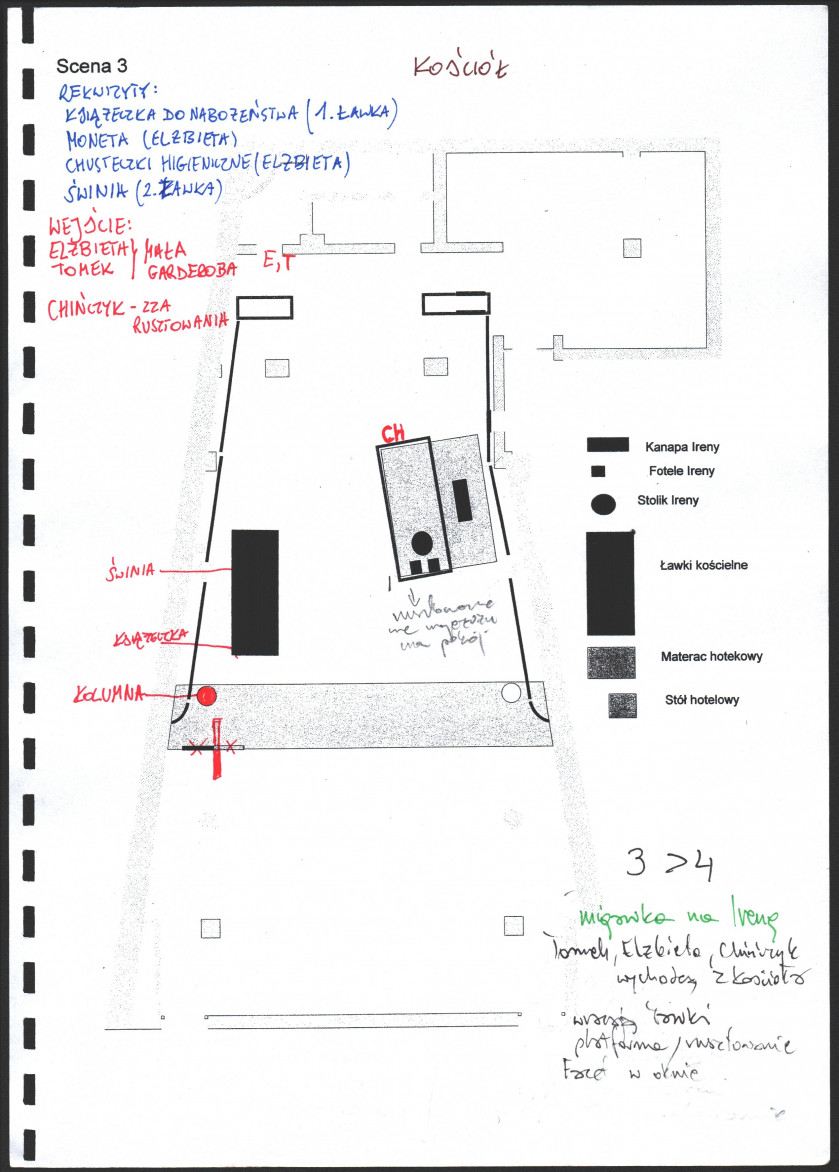 Scena 3
KOŚCIÓŁ
REKWIZYTY:
KSIĄŻECZKA DO NABOŻEŃSTWA (1. ŁAWKA)
MONETA (ELŻBIETA)
CHUSTECZKI HIGIENICZNE (ELŻBIETA)
ŚWINIA (2. ŁAWKA)
WEJŚCIE:
ELŻBIETA MAŁA
TOMEK GARDEROBA
E, T
CHIŃCZYK - ZZA
RUSZTOWANIA
CH
Kanapa Ireny
Fotele Ireny
Stolik Ireny
Ławki kościelne
Materac hotekowy
Stół hotelowy
ŚWINIA
KSIĄŻECZKA
KOLUMNA
rusztowanie
na pokój
3 > 4
migawka na Irenę
Tomek, Elżbieta, Chińczyk
wychodzą z kościoła
ławki
platforma / rusztowanie
Facet w oknie